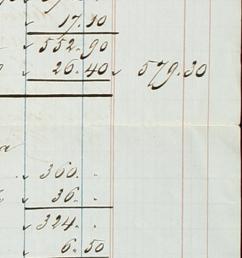 17.30
552.90
26.40 579.30
a
360. .
36. .
324. .
6.50